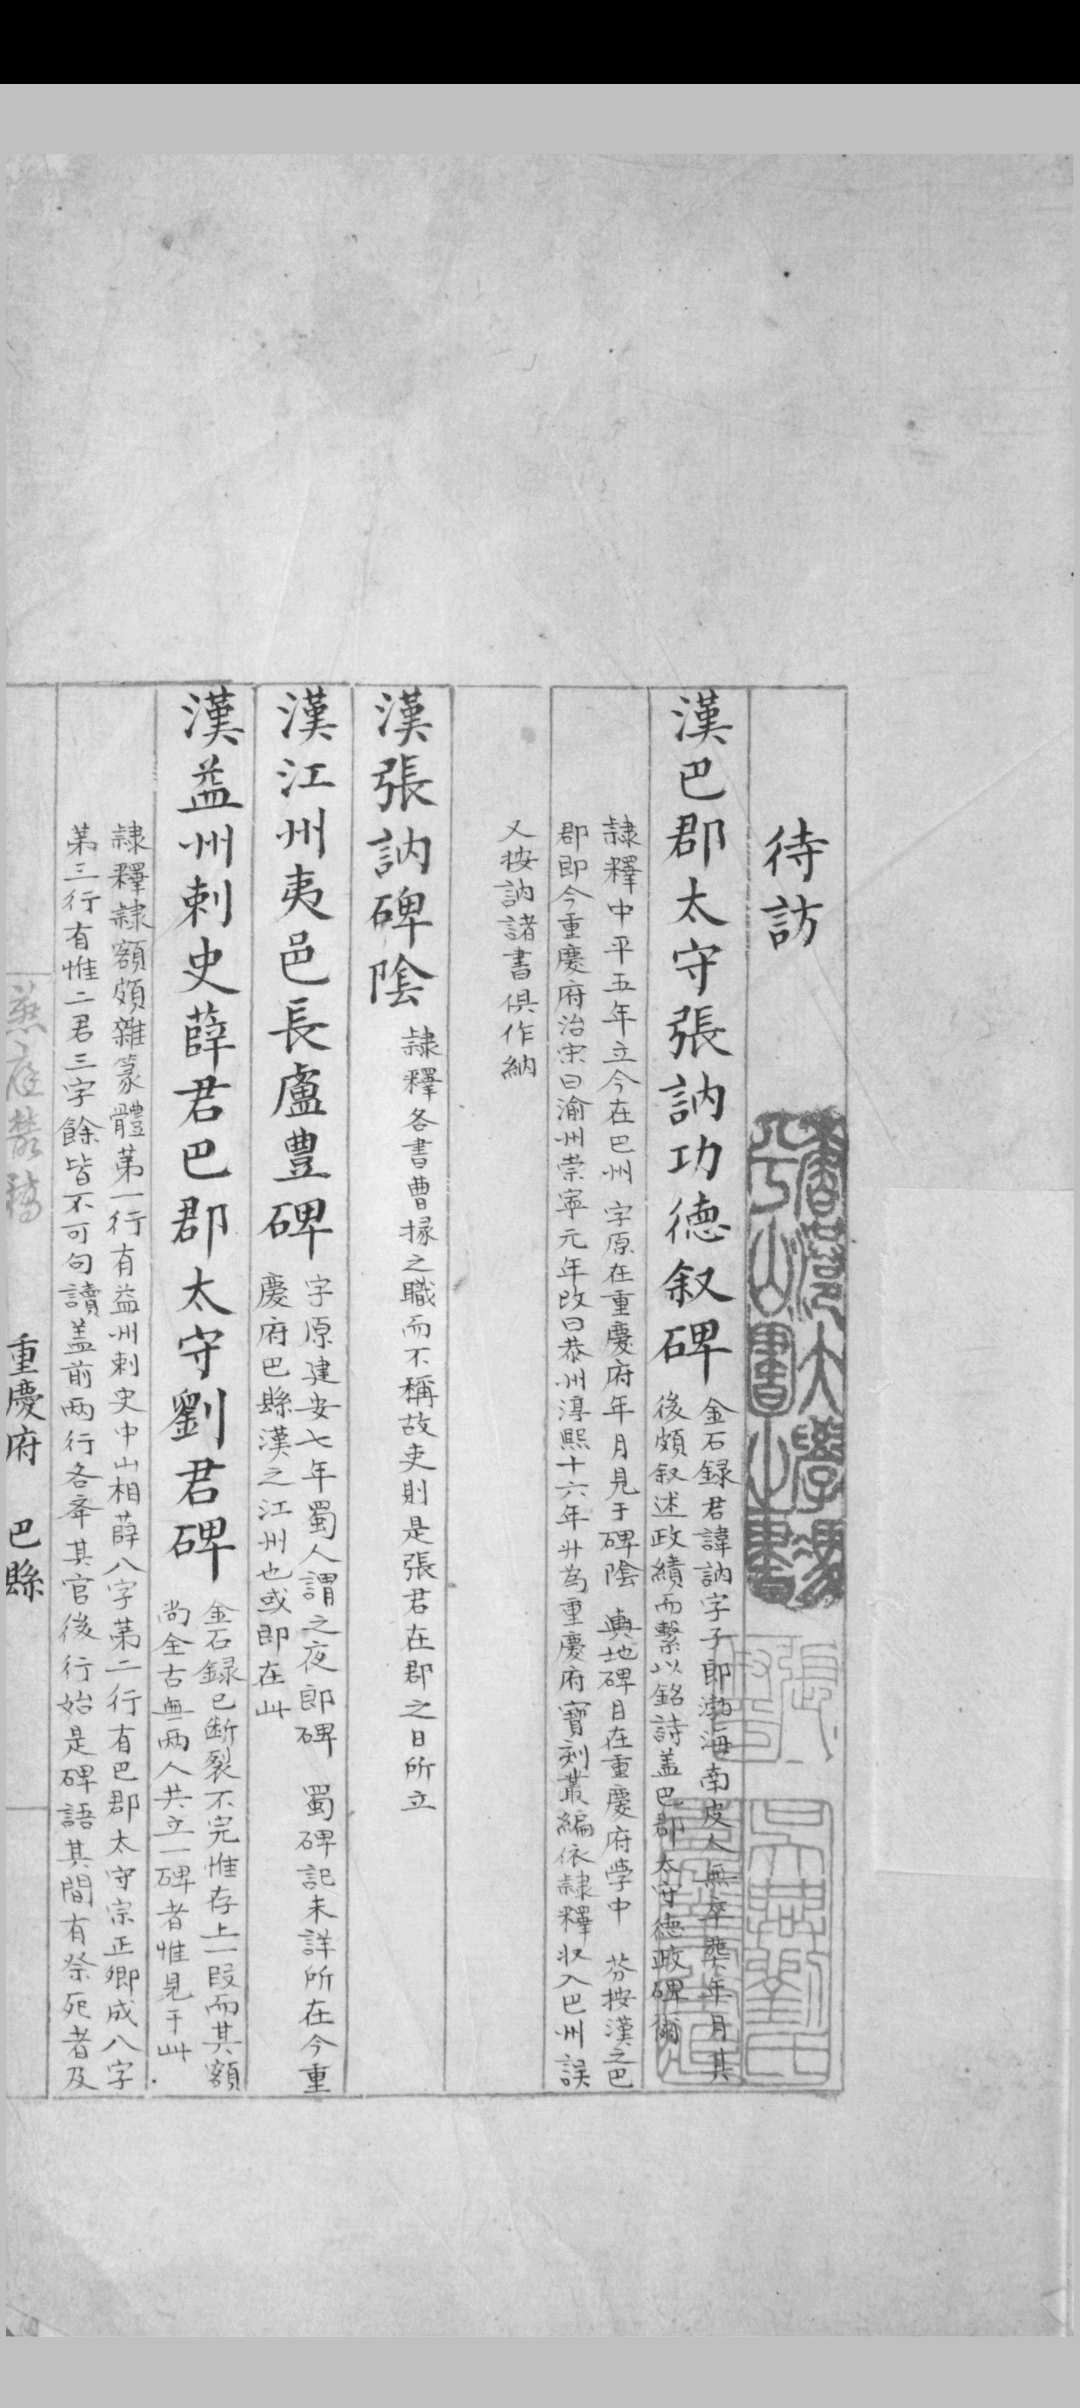 待訪
漢巴郡太守張訥功德叙碑
金石録君諱訥字子郎渤海南皮人無卒葬年月其
後頗叙述政績而繫以銘詩盖巴郡太守德政碑爾
隷釋中平五年立今在巴州 字原在重慶府年月見于碑陰 輿地碑目在重慶府學中 芬按漢之巴
郡即今重慶府治宋曰渝州崇寧元年改曰恭州淳熙十六年廾為重慶府寶刻叢編依隷釋収入巴州誤
又按訥諸書俱作納
漢張訥碑陰
隷釋各書曹掾之職而不稱故吏則是張君在郡之日所立
漢江州夷邑長盧豊碑
字原建安七年蜀人謂之夜郎碑 蜀碑記未詳所在今重
慶府巴縣漢之江州也或即在此
漢益州刺史薛君巴郡太守劉君碑
金石録已断裂不完惟存上一段而其額
尚全古無兩人共立一碑者惟見于此
隷釋隷額頗雜篆體苐一行有益州刺史中山相薛八字苐二行有巴郡太守宗正卿成八字
苐三行有惟二君三字餘皆不可句讀盖前兩行各牽其官後行始是碑語其間有祭死者及
燕庭叢稿
重慶府 巴縣